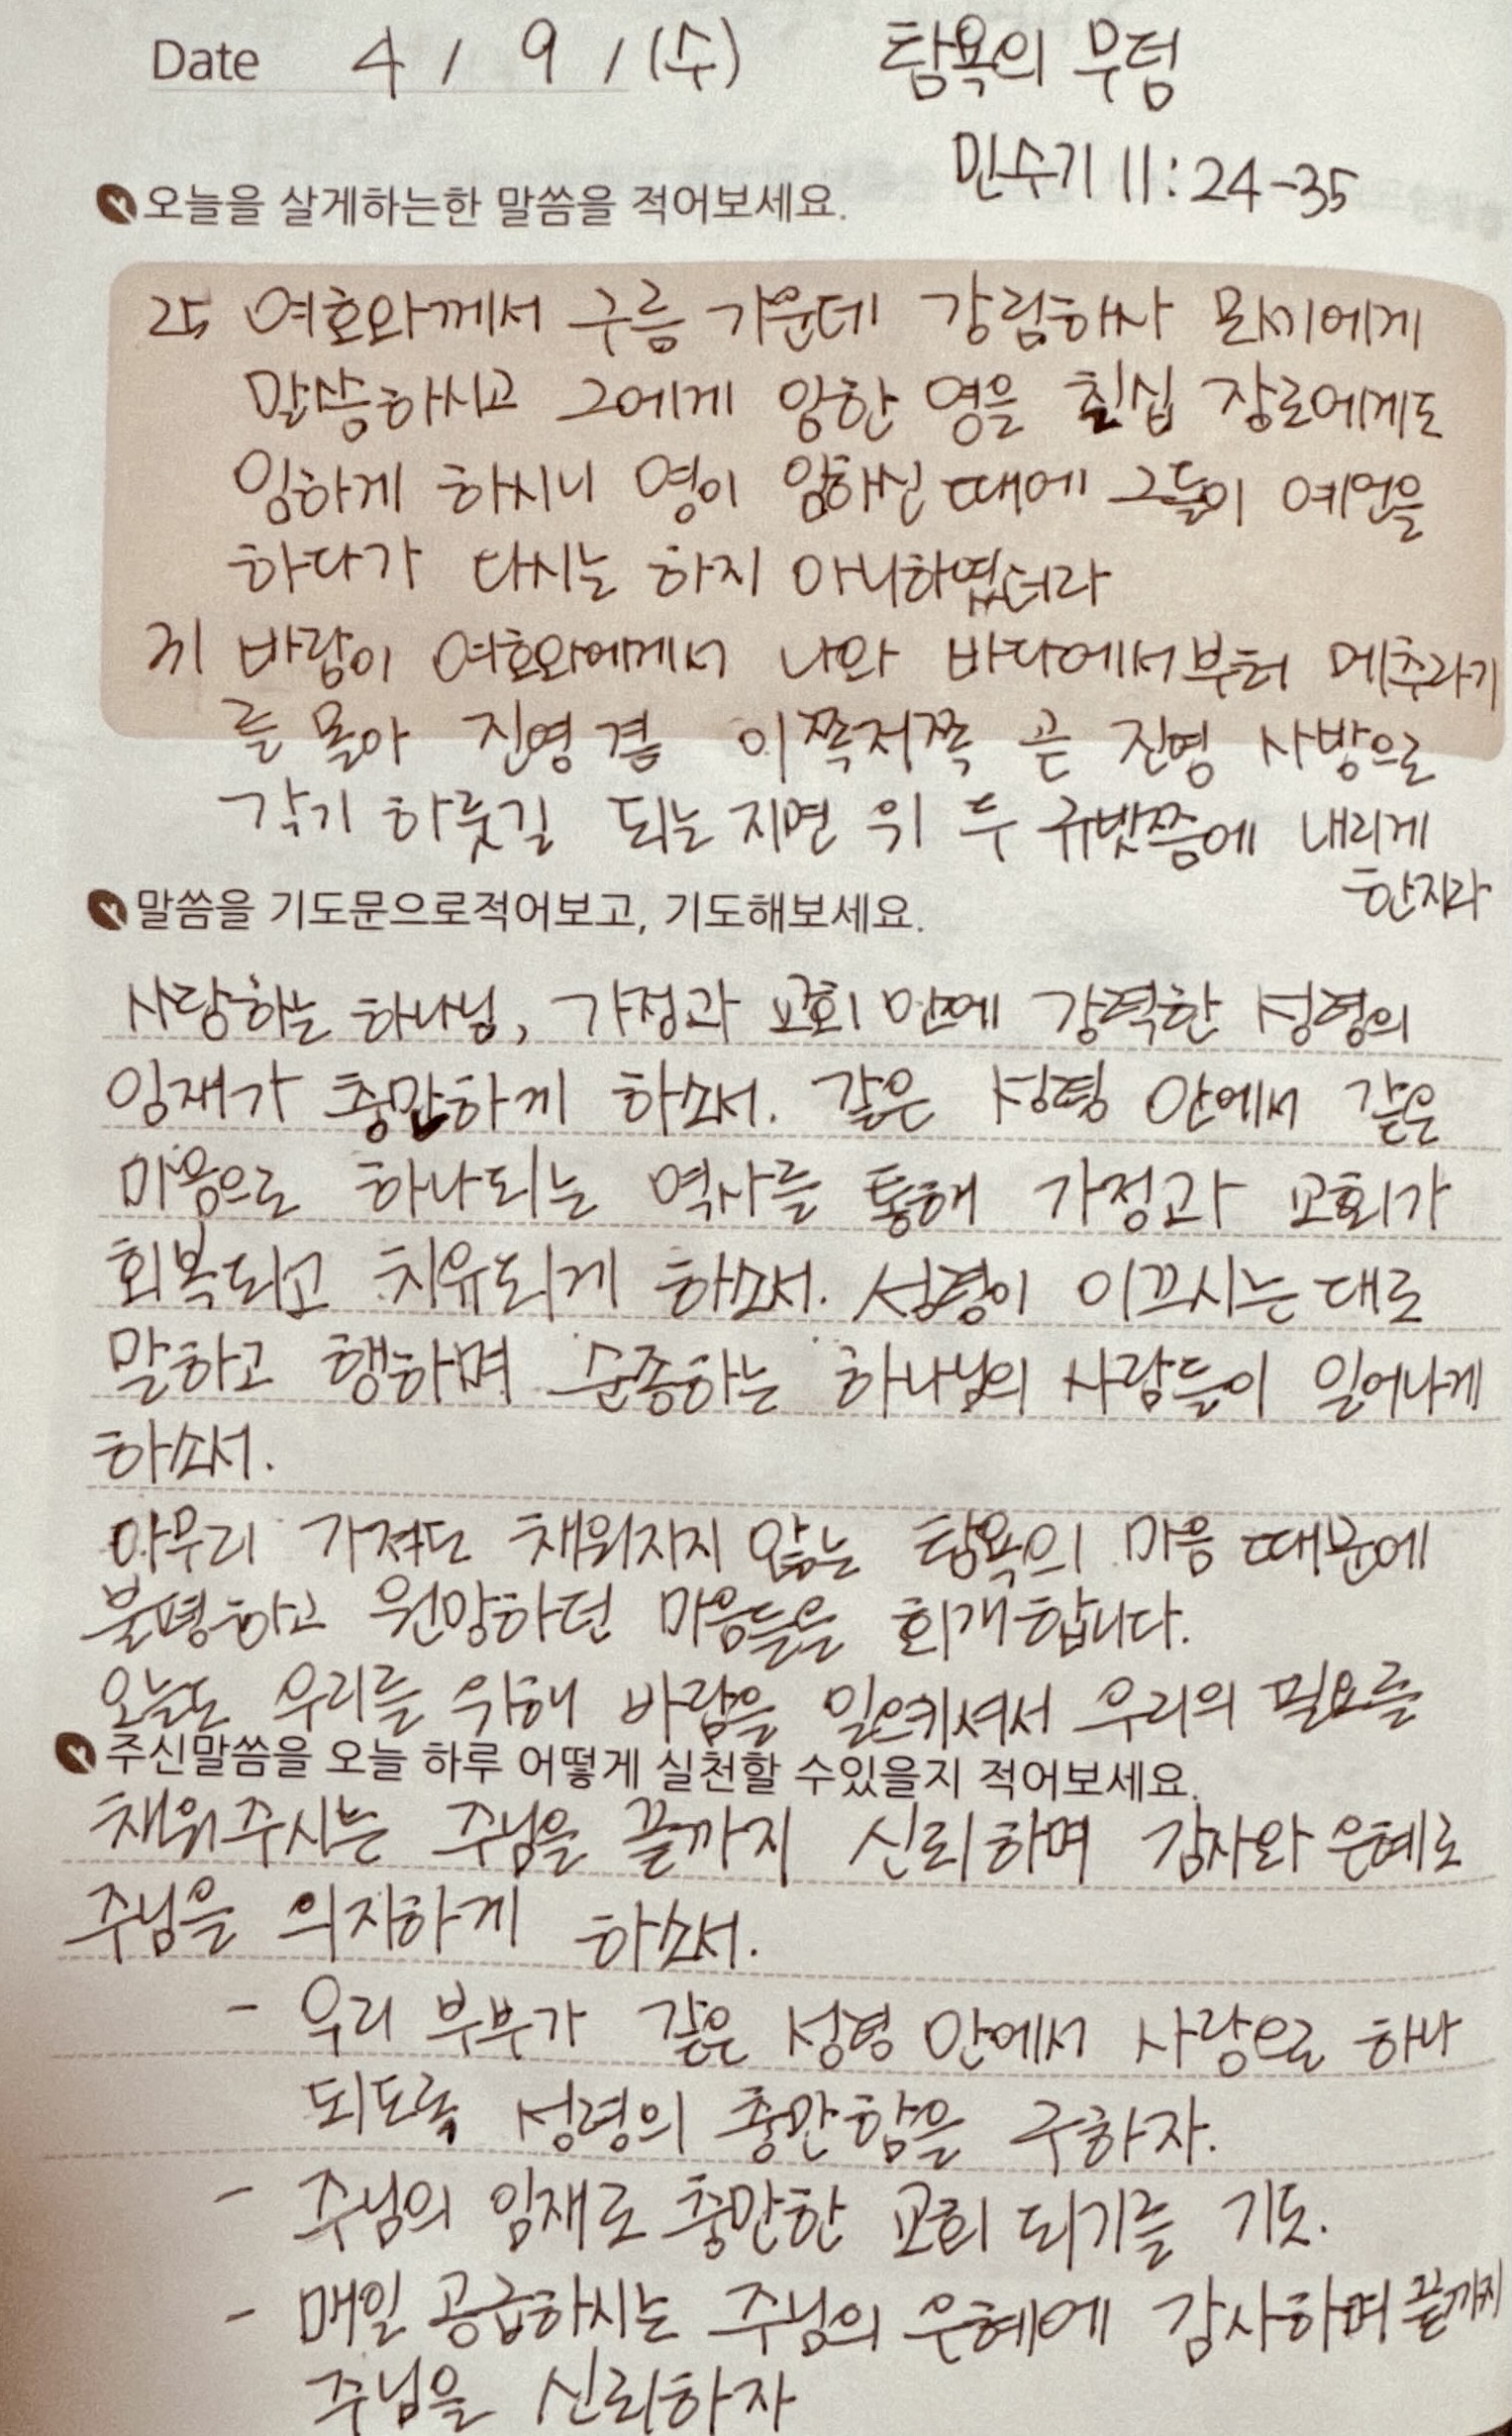 Date 4 / 9 / (수) 탐욕의 무덤
민수기 11:24-35
오늘을 살게하는한 말씀을 적어보세요.
25 여호와께서 구름 가운데 강림하사 모세에게
말씀하시고 그에게 임한 영을 칠십 장로에게도
임하게 하시니 영이 임하신 때에 그들이 예언을
하다가 다시는 하지 아니하였더라
31 바람이 여호와에게서 나와 바다에서부터 메추라기
를 몰아 진영 곁 이쪽저쪽 곧 진영 사방으로
각기 하룻길 되는 지면 위 두 규빗쯤에 내리게
한지라
말씀을 기도문으로적어보고, 기도해보세요.
사랑하는 하나님, 가정과 교회 안에 강력한 성령의
임재가 충만하게 하소서. 같은 성령 안에서 같은
마음으로 하나되는 역사를 통해 가정과 교회가
회복되고 치유되게 하소서. 성령이 이끄시는 대로
말하고 행하며 순종하는 하나님의 사람들이 일어나게
하소서.
아무리 가져도 채워지지 않는 탐욕의 마음 때문에
불평하고 원망하던 마음들을 회개합니다.
오늘도 우리를 위해 바람을 일으키셔서 우리의 필요를
주신말씀을 오늘 하루 어떻게 실천할 수있을지 적어보세요.
채워주시는 주님을 끝까지 신뢰하며 감사와 은혜로
주님을 의지하게 하소서.
- 우리 부부가 같은 성령 안에서 사랑으로 하나
되도록 성령의 충만함을 구하자.
- 주님의 임재로 충만한 교회 되기를 기도.
- 매일 공급하시는 주님의 은혜에 감사하며 끝까지
주님을 신뢰하자